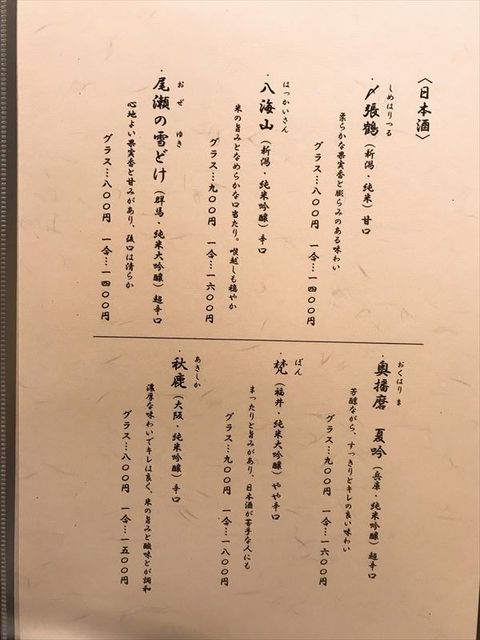 〈日本酒〉
しめはりつる
・〆張鶴（新潟・純米）甘口
柔らかな果実香と膨らみのある味わい
グラス…八〇〇円　一合…一四〇〇円
はっかいさん
・八海山（新潟・純米吟醸）辛口
米の旨みとなめらかな口当たり。喉越しも穏やか
グラス…九〇〇円　一合…一六〇〇円
おぜ　ゆき
・尾瀬の雪どけ（群馬・純米大吟醸）超辛口
心地よい果実香と甘みがあり、後口は清らか
グラス…八〇〇円　一合…一四〇〇円
おくはりま
・奥播磨　夏吟（兵庫・純米吟醸）超辛口
芳醇ながら、すっきりとキレの良い味わい
グラス…九〇〇円　一合…一六〇〇円
ぼん
・梵（福井・純米大吟醸）やや辛口
まったりと旨みがあり、日本酒が苦手な人にも
グラス…九〇〇円　一合…一八〇〇円
あきしか
・秋鹿（大阪・純米吟醸）辛口
濃厚な味わいでキレは良く、米の旨みと酸味とが調和
グラス…八〇〇円　一合…一五〇〇円